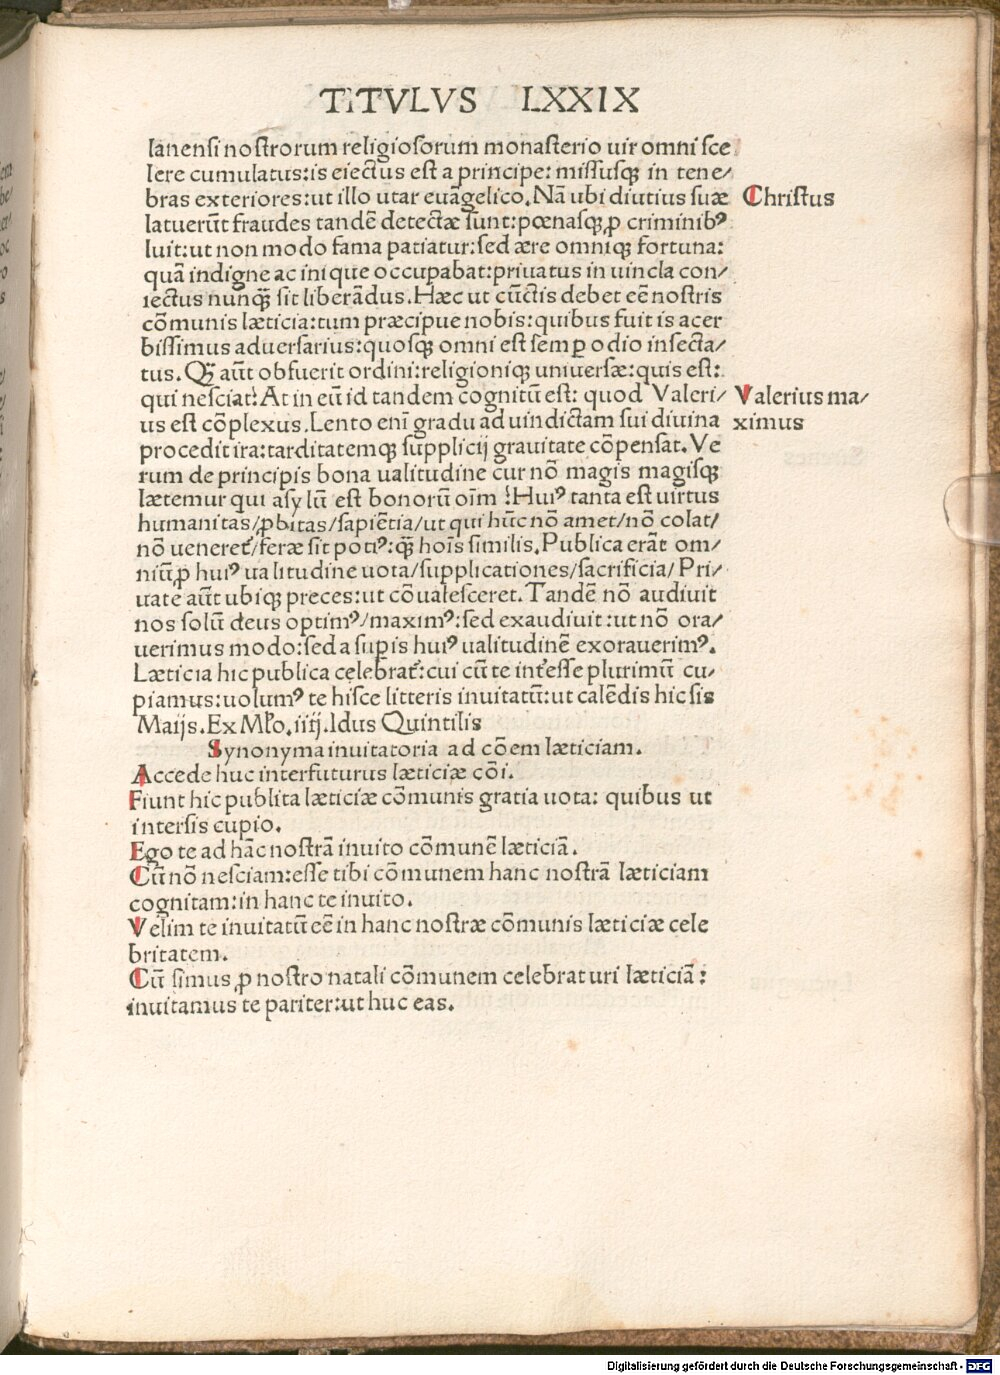 TITVLVS LXXIX
lanensi nostrorum religiosorum monasterio uir omni sce
lere cumulatus:is eiectus est a principe: missusq; in tene/
bras exteriores:ut illo utar euāgelico.Nā ubi diutius suæ
Christus
latuerūt fraudes tandē detectæ sunt:pœnasq; ꝑ criminibꝰ
luit:ut non modo fama patiatur:sed ære omniq; fortuna:
quā indigne ac inique occupabat:priuatus in uincla con/
iectus nunq̃ sit liberādus.Hæc ut cūctis debet eē nostris
cōmunis læticia:tum præcipue nobis:quibus fuit is acer
bissimus aduersarius:quosq; omni est semꝑ odio insecta/
tus.Q; aūt obfuerit ordini:religioniq; uniuersæ:quis est:
qui nesciat?At in eū id tandem cognitū est: quod Valeri/
Valerius ma/
us est cōplexus.Lento enī gradu ad uindictam sui diuina
ximus
procedit ira:tarditatemq; supplicij grauitate cōpensat.Ve
rum de principis bona ualitudine cur nō magis magisq;
lætemur qui asylū est bonorū oīm?Huiꝰ tanta est uirtus
humanitas/ꝓbitas/sapiētia/ut qui hūc nō amet/nō colat/
nō ueneret̃/feræ sit potiꝰ:q̃ hoīs similis.Publica erāt om/
niū ꝓ huiꝰ ualitudine uota/supplicationes/sacrificia/Pri/
uate aūt ubiq; preces:ut cōualesceret.Tandē nō audiuit
nos solū deus optimꝰ/maximꝰ:sed exaudiuit:ut nō ora/
uerimus modo:sed a supis huiꝰ ualitudinē exorauerimꝰ.
Læticia hic publica celebrat̃:cui cū te int̃esse plurimū cu/
piamus:uolumꝰ te hisce litteris inuitatū:ut calēdis hic sis
Maijs.Ex Mľo.iiij.Idus Quintilis
Synonyma inuitatoria ad cōem læticiam.
Accede huc interfuturus læticiæ cōi.
Fiunt hic publita læticiæ cōmunis gratia uota: quibus ut
intersis cupio.
Ego te ad hāc nostrā inuito cōmunē læticiā.
Cū nō nesciam:esse tibi cōmunem hanc nostrā læticiam
cognitam:in hanc te inuito.
Velim te inuitatū eē in hanc nostræ cōmunis læticiæ cele
britatem.
Cū simus ꝓ nostro natali cōmunem celebraturi læticiā:
inuitamus te pariter:ut huc eas.
Digitalisierung gefördert durch die Deutsche Forschungsgemeinschaft - DFG